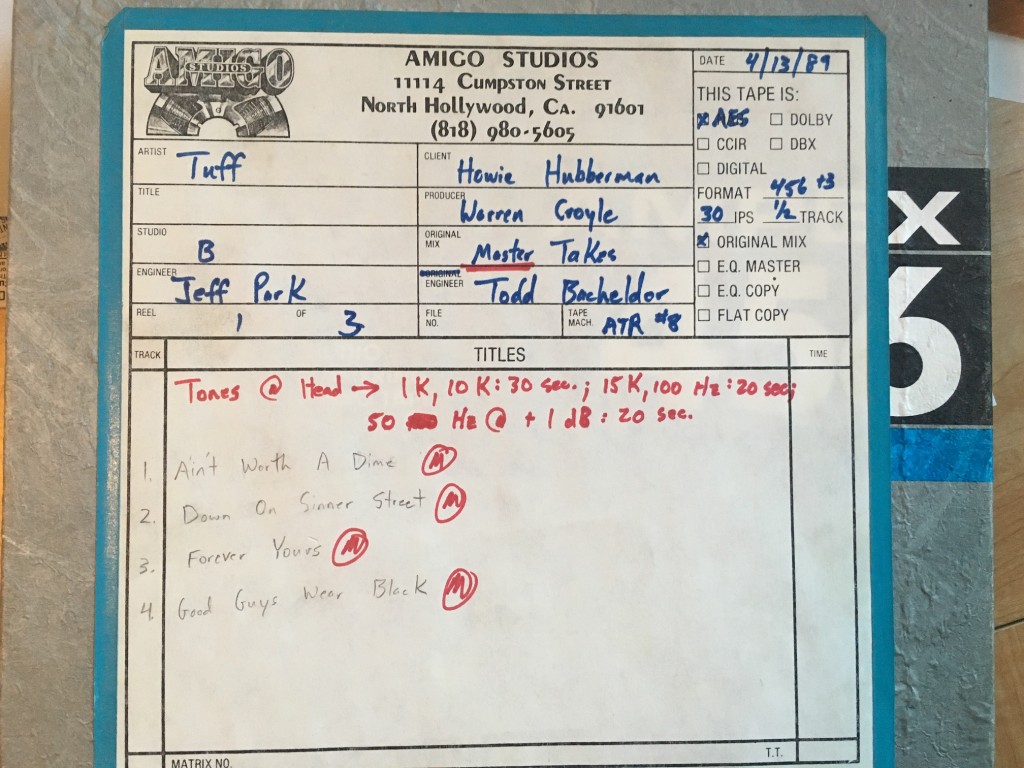 AMIGO
STUDIOS
AMIGO STUDIOS
11114 Cumpston Street
North Hollywood, Ca. 91601
(818) 980-5605
DATE 4/13/89
THIS TAPE IS:
AES DOLBY
CCIR DBX
DIGITAL
FORMAT 456 +3
30 IPS 1/2 TRACK
ORIGINAL MIX
E.Q. MASTER
E.Q. COPY
FLAT COPY
ARTIST Tuff
CLIENT Howie Hubberman
TITLE
PRODUCER Warren Croyle
STUDIO B
ORIGINAL MIX Master Takes
ENGINEER Jeff Park
ORIGINAL ENGINEER Todd Bacheldor
REEL 1 OF 3
FILE NO.
TAPE MACH. ATR #8
TRACK TITLES TIME
Tones @ Head → 1K, 10K: 30 sec.; 15K, 100 Hz: 20 sec;
50 Hz @ + 1 dB: 20 sec.
1. Ain't Worth A Dime M
2. Down On Sinner Street M
3. Forever Yours M
4. Good Guys Wear Black M
MATRIX NO. T.T.
X
6